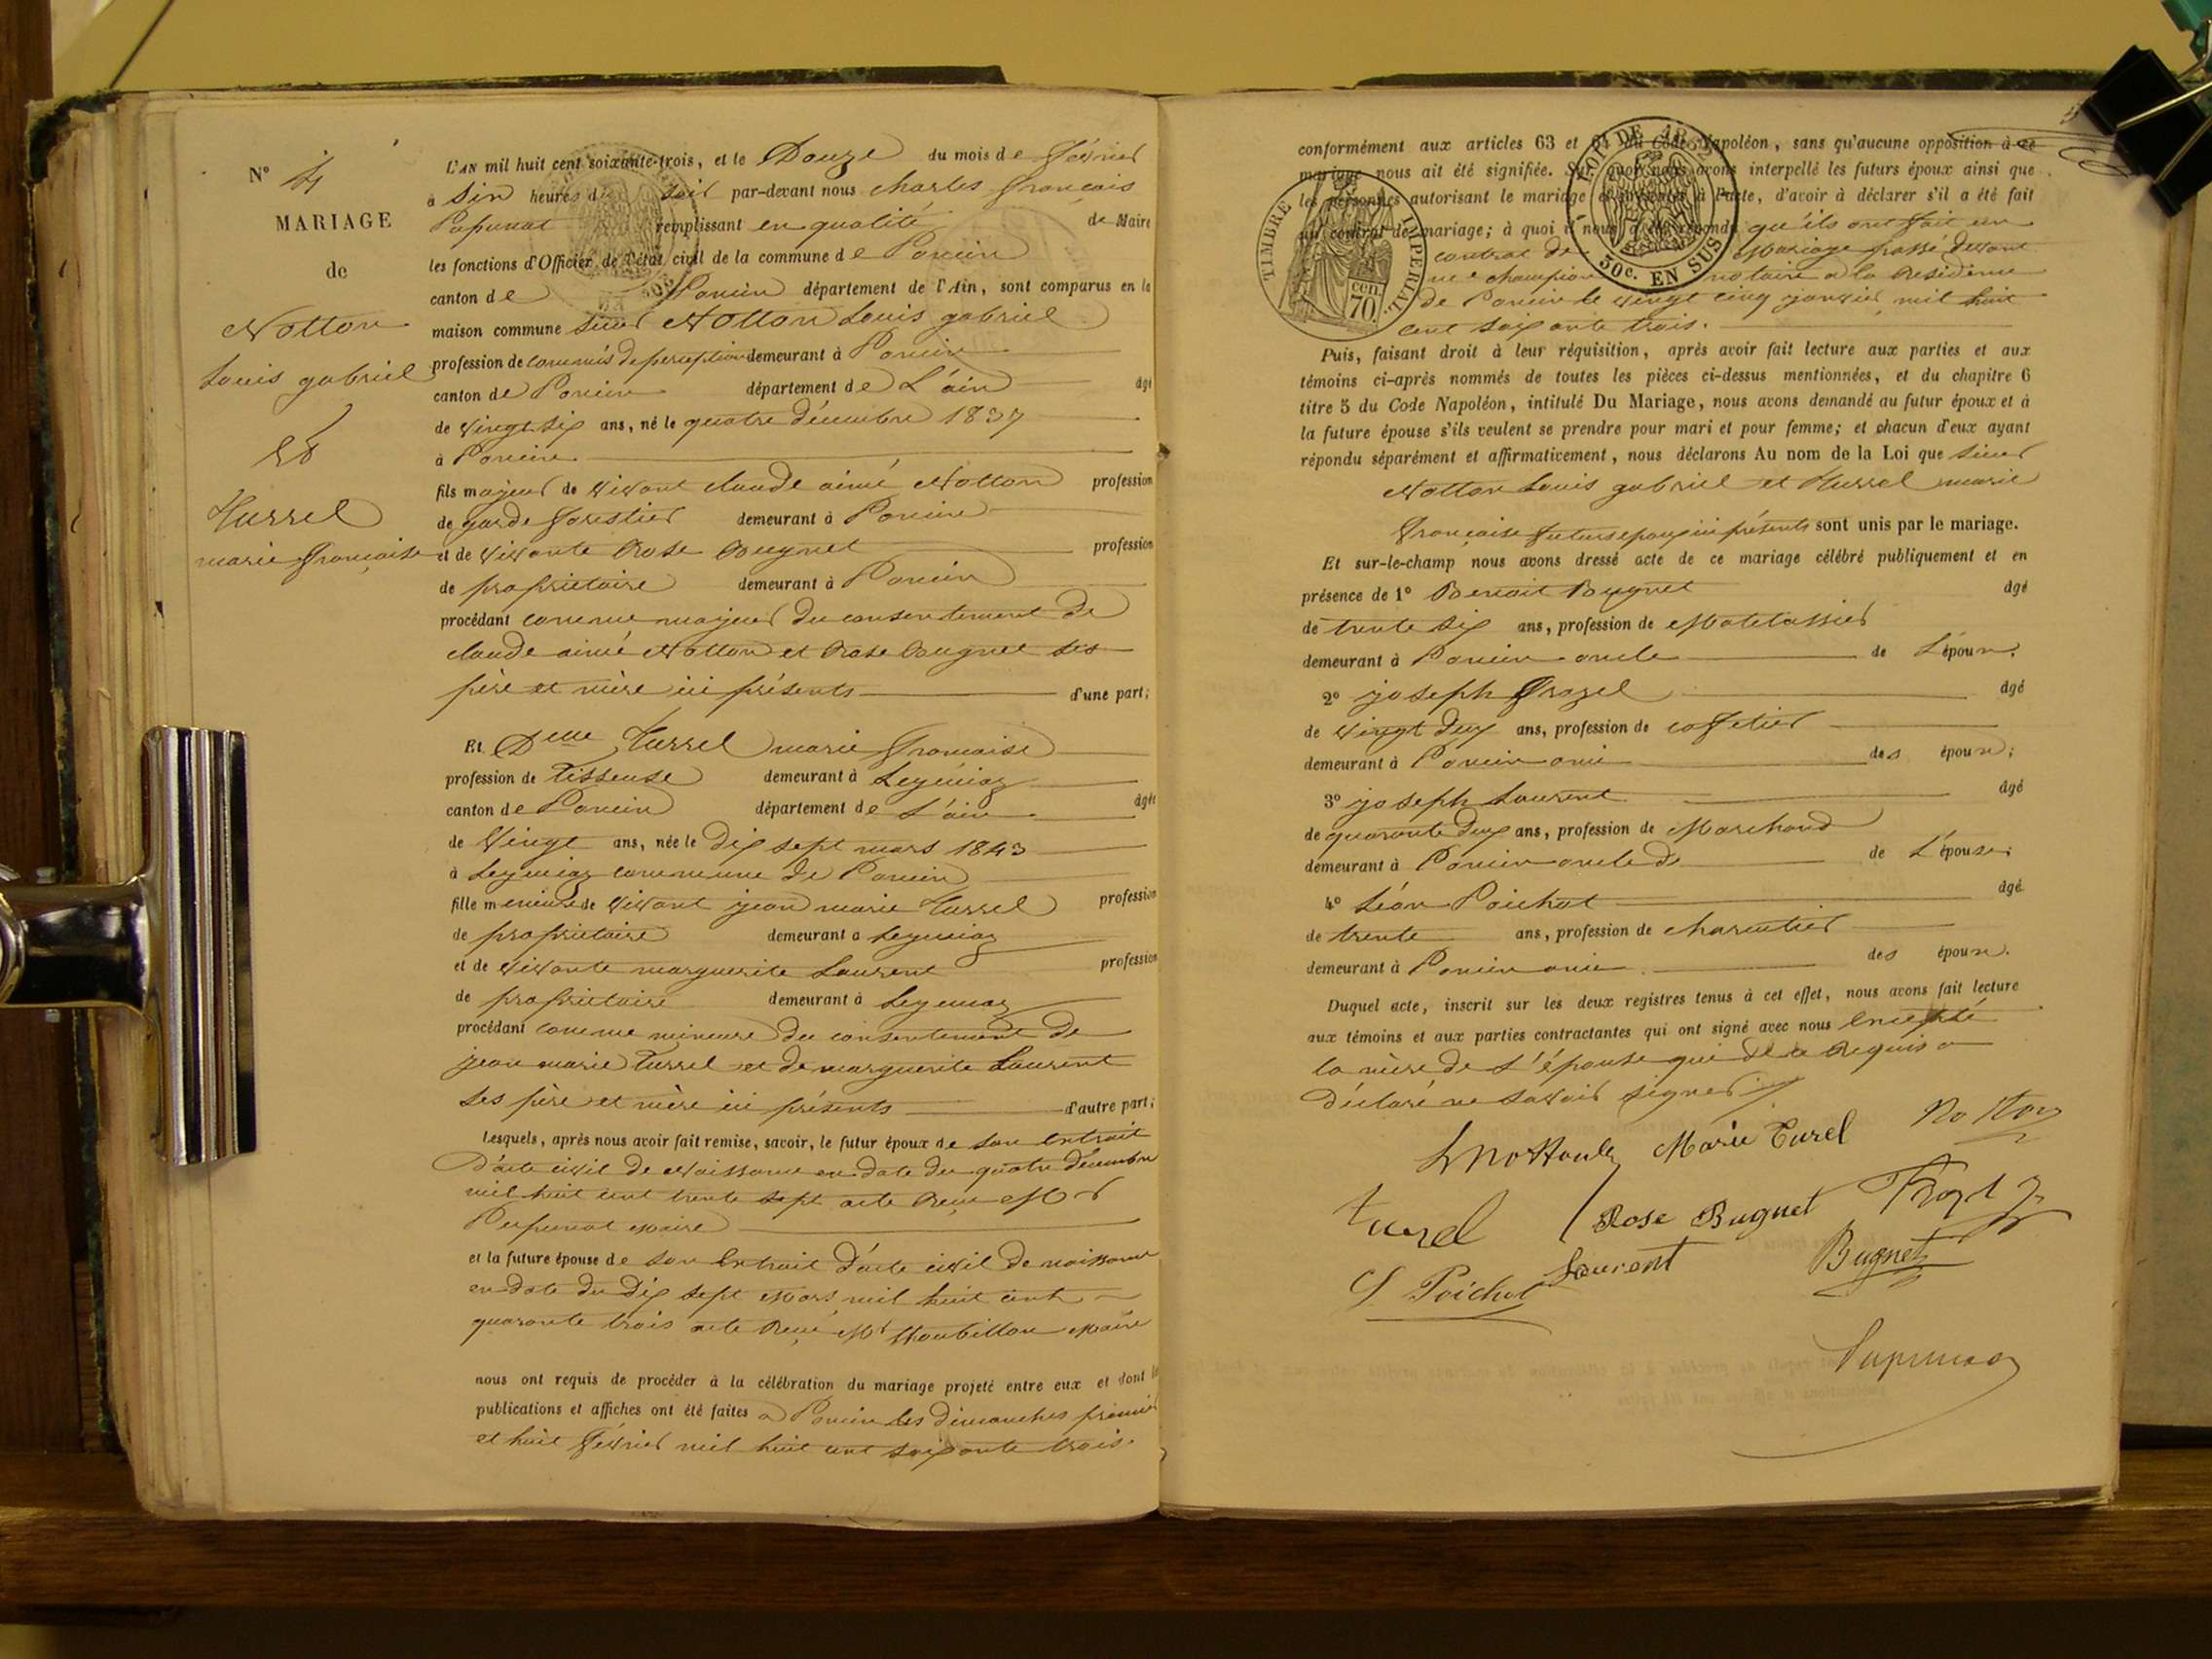 N° 4
MARIAGE
de
Notton
Louis gabriel
Et
Turrel
marie françoise
L'AN mil huit cent soixante-trois, et le Douze du mois de février
à six heures du soir par-devant nous charles françois
remplissant en qualité de Maire
les fonctions d'Officier de l'état civil de la commune de Poncin
canton de Poncin département de l'Ain, sont comparus en la
maison commune sieur Notton Louis gabriel
profession de commis de perception demeurant à Poncin
canton de Poncin département de L'ain âgé
de vingt six ans, né le quatre décembre 1837
à Poncin
fils majeur de vivant claude aimé Notton profession
de garde forestier demeurant à Poncin
et de vivante Rose Bugnet profession
de propriétaire demeurant à Poncin
procédant comme majeur du consentement de
claude aimé Notton et Rose Bugnet ses
père et mère ici présents d'une part;
Et Delle Turrel marie françoise
profession de Tisseuse demeurant à Leymiaz
canton de Poncin département de L'ain âgée
de Vingt ans, née le dix sept mars 1843
à Leymiaz commune de Poncin
fille mineure de vivant jean marie Turrel profession
de propriétaire demeurant à Leymiaz
et de vivante marguerite Laurent profession
de propriétaire demeurant à Leymiaz
procédant comme mineure du consentement de
jean marie Turrel et de marguerite Laurent
ses père et mère ici présents d'autre part;
Lesquels, après nous avoir fait remise, savoir, le futur époux de son extrait
d'acte civil de Naissance en date du quatre décembre
mil huit cent trente sept acte reçu Mr
maire
et la future épouse de son extrait d'acte civil de naissance
en date du dix sept Mars mil huit cent
quarante trois acte reçu Mr Maire
nous ont requis de procéder à la célébration du mariage projeté entre eux et dont les
publications et affiches ont été faites à Poncin les dimanches premier
et huit février mil huit cent soixante trois.
conformément aux articles 63 et 64 du Code Napoléon, sans qu'aucune opposition à ce
mariage nous ait été signifiée. Sur quoi nous avons interpellé les futurs époux ainsi que
les personnes autorisant le mariage et présentes à l'acte, d'avoir à déclarer s'il a été fait
un contrat de mariage; à quoi il nous a été répondu qu'ils ont fait un
contrat de Mariage passé devant
me champion notaire à la Résidence
de Poncin le vingt cinq janvier mil huit
cent soixante trois.
TIMBRE IMPERIAL
70 CEN.
LOI DE 1862
50c. EN SUS
Puis, faisant droit à leur réquisition, après avoir fait lecture aux parties et aux
témoins ci-après nommés de toutes les pièces ci-dessus mentionnées, et du chapitre 6
titre 5 du Code Napoléon, intitulé Du Mariage, nous avons demandé au futur époux et à
la future épouse s'ils veulent se prendre pour mari et pour femme; et chacun d'eux ayant
répondu séparément et affirmativement, nous déclarons Au nom de la Loi que sieur
Notton Louis gabriel et Turrel marie
françoise futurs époux ici présents sont unis par le mariage.
Et sur-le-champ nous avons dressé acte de ce mariage célébré publiquement et en
présence de 1° Benoit Bugnet âgé
de trente six ans, profession de Matelassier
demeurant à Poncin oncle de L'époux.
2° joseph Frozel âgé
de vingt deux ans, profession de caffetier
demeurant à Poncin ami des époux;
3° joseph Laurent âgé
de quarante deux ans, profession de Marchand
demeurant à Poncin oncle de de L'épouse;
4° Léon Poichot âgé
de trente ans, profession de charcutier
demeurant à Poncin ami des époux.
Duquel acte, inscrit sur les deux registres tenus à cet effet, nous avons fait lecture
aux témoins et aux parties contractantes qui ont signé avec nous Excepté
la mère de L'épouse qui de ce Requis a
déclaré ne savoir signer
Marie Turel Notton
turel Rose Bugnet
L Poichot Laurent Bugnet